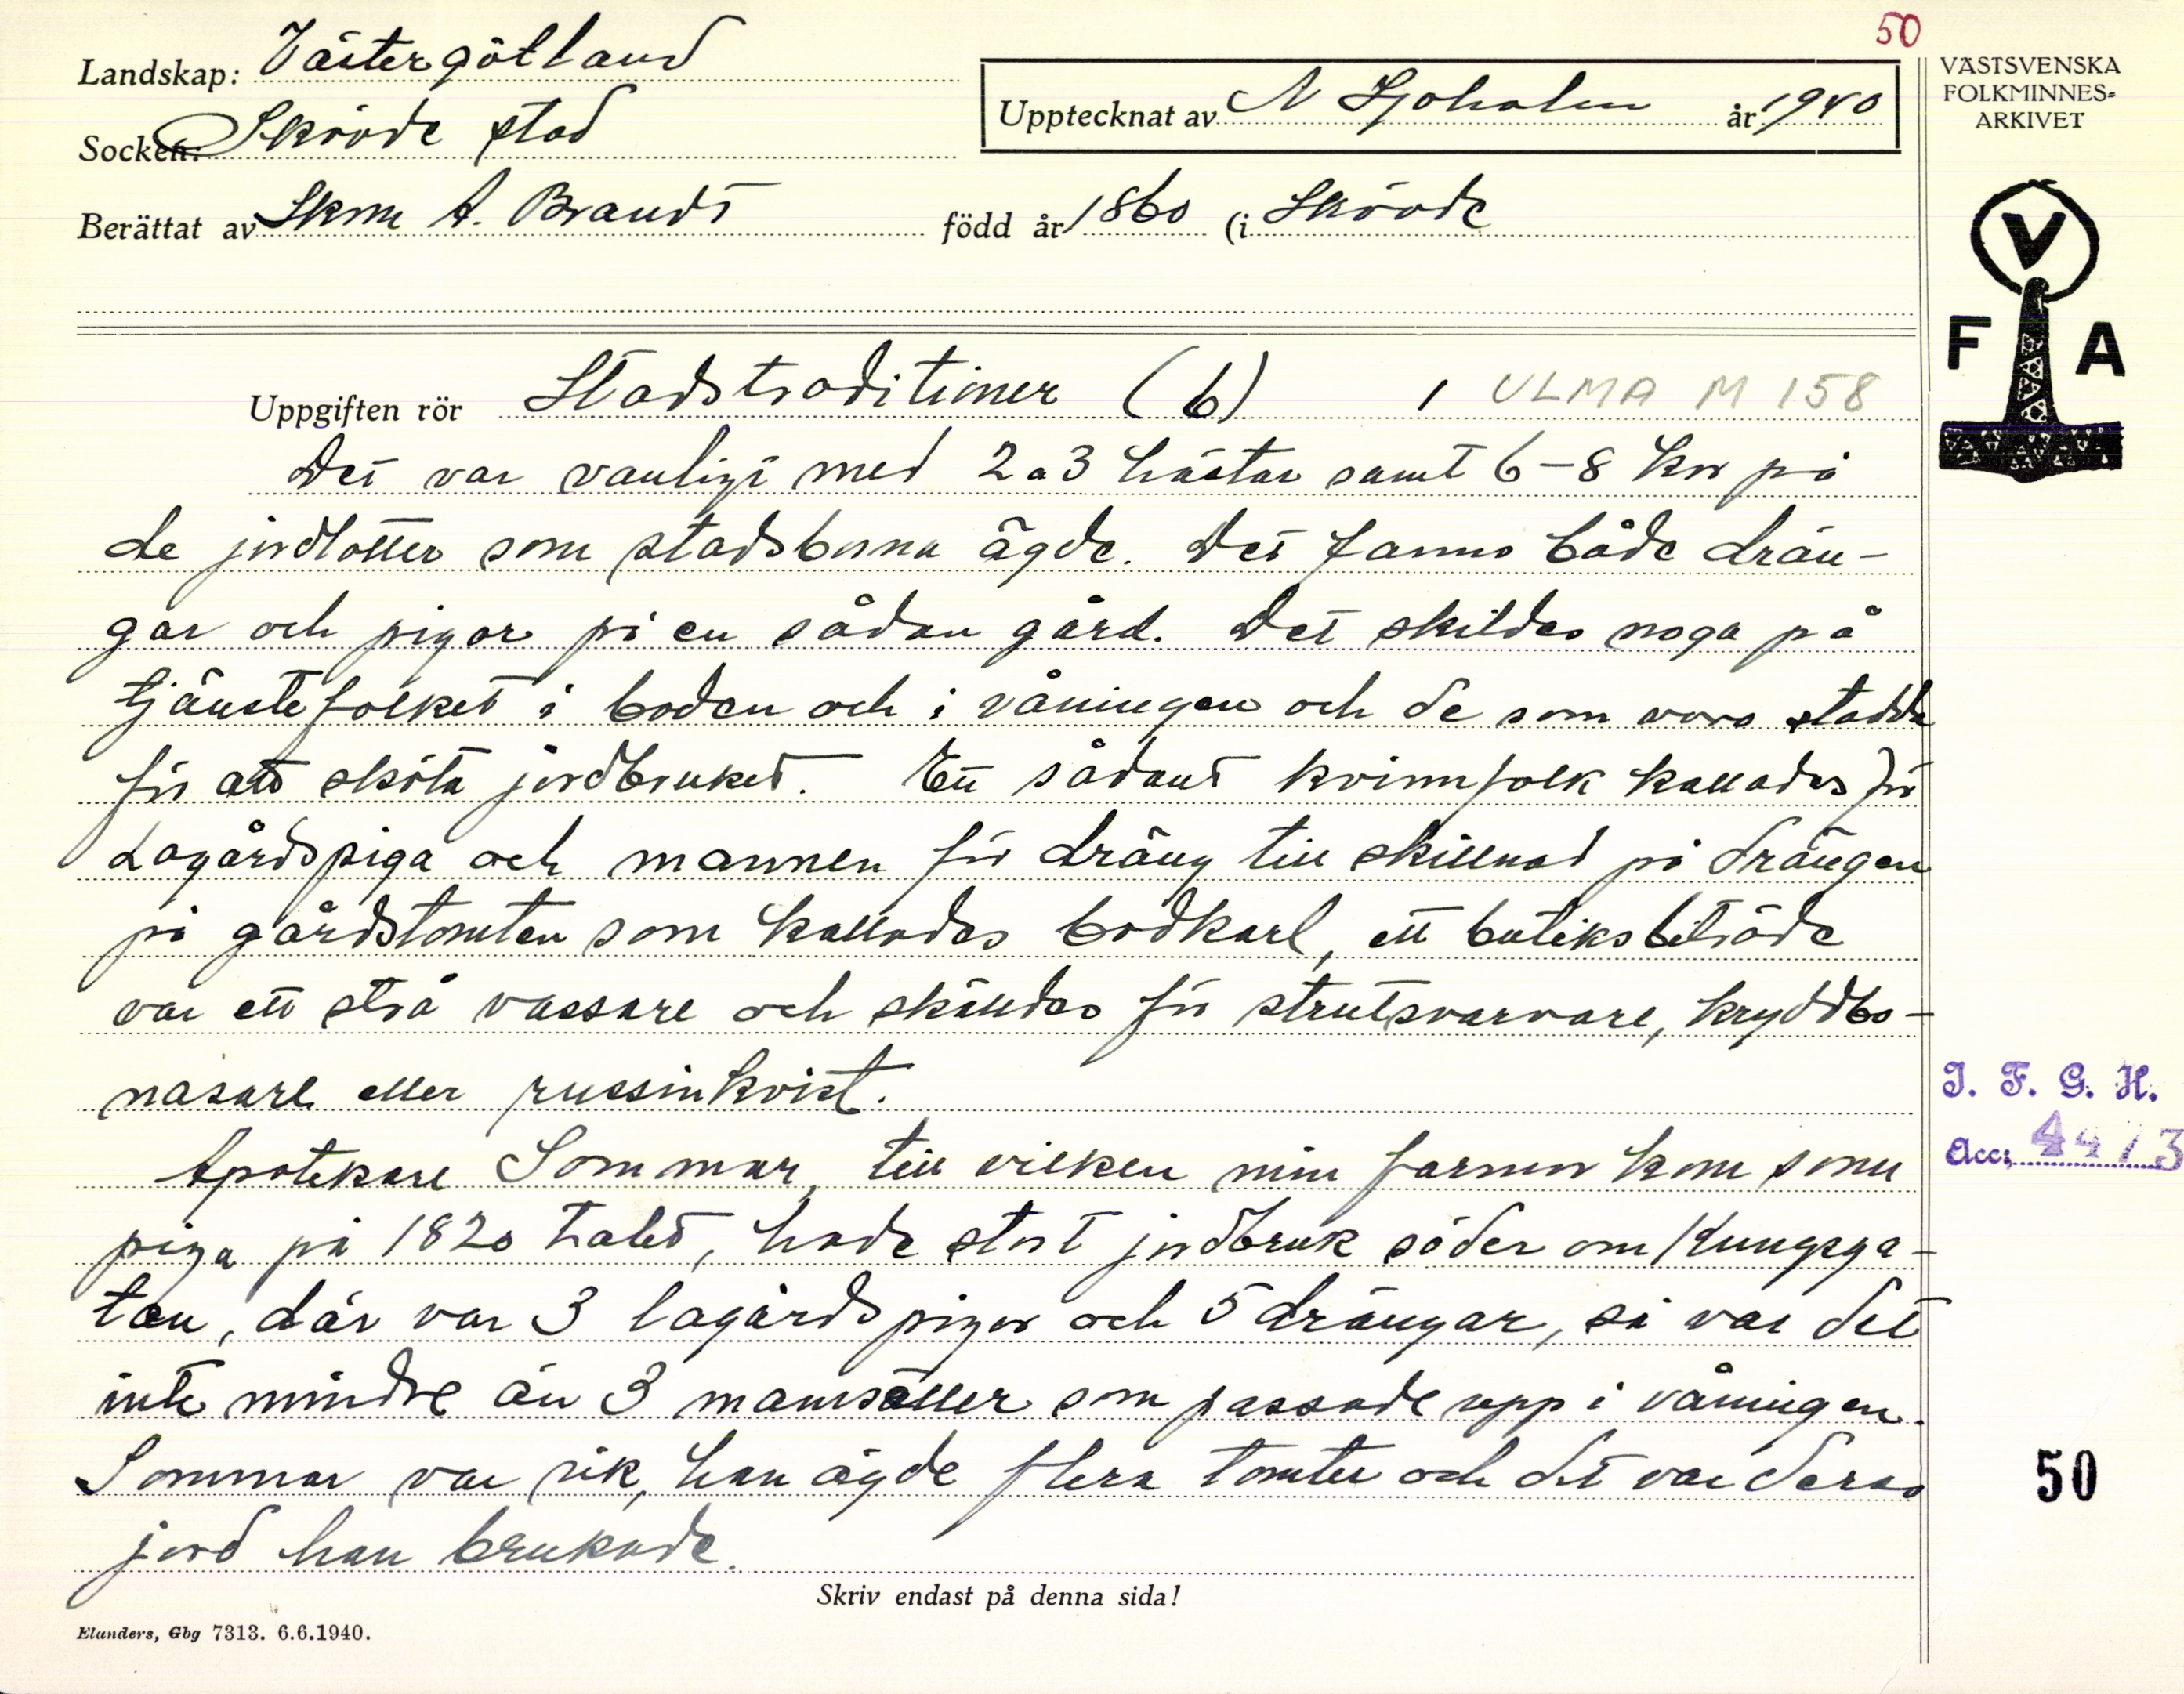 50
Landskap: Västergötland
Socken: Skövde stad
Upptecknat av N Sjöholm år 1940
Berättat av Skm A. Brandt född år 1860 (i Skövde
VÄSTSVENSKA
FOLKMINNES-
ARKIVET
V
F A
Uppgiften rör Stadstraditioner (6) 1 ULMA M 158
Det var vanligt med 2 a 3 hästar samt 6-8 kor på
de jordlotter som stadsborna ägde. Det fanns både drän-
gar och pigor på en sådan gård. Det skildes noga på
tjänstefolket i boden och i våningen och de som voro stadda
för att sköta jordbruket. Ett sådant kvinnfolk kallades för
Lagårdspiga och mannen för dräng till skillnad på drängen
på gårdstomten som kallades bodkarl, ett butiksbiträde
var ett strå vassare och skälldes för strutsvarvare, kryddbo-
nasare eller russinkvist.
Apotekare Sommar, till vilken min farmor kom som
piga på 1820 talet, hade stort jordbruk söder om Kungsga-
tan, där var 3 lagårdspigor och 5 drängar, så var det
inte mindre än 3 mamsäller som passade upp i våningen.
Sommar var rik, han ägde flera tomter och det var deras
jord han brukade.
I. F. G. H.
Acc: 4473
50
Skriv endast på denna sida!
Elanders, Gbg 7313. 6.6.1940.